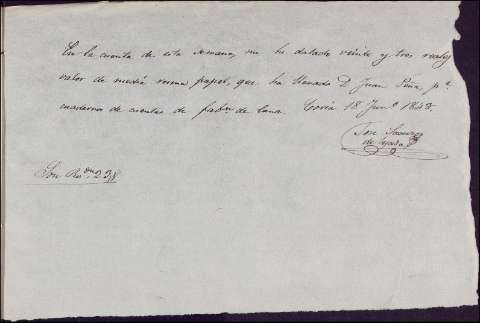 En la cuenta de esta semana, me he datado veinte y tres reales
valor de media resma papel, que ha llevado D. Juan Peña, pª
cuaderno de cuentas de fabª de lana. Coria 18 Junº 1843.
Jose
de
Son Rs vn 23,,